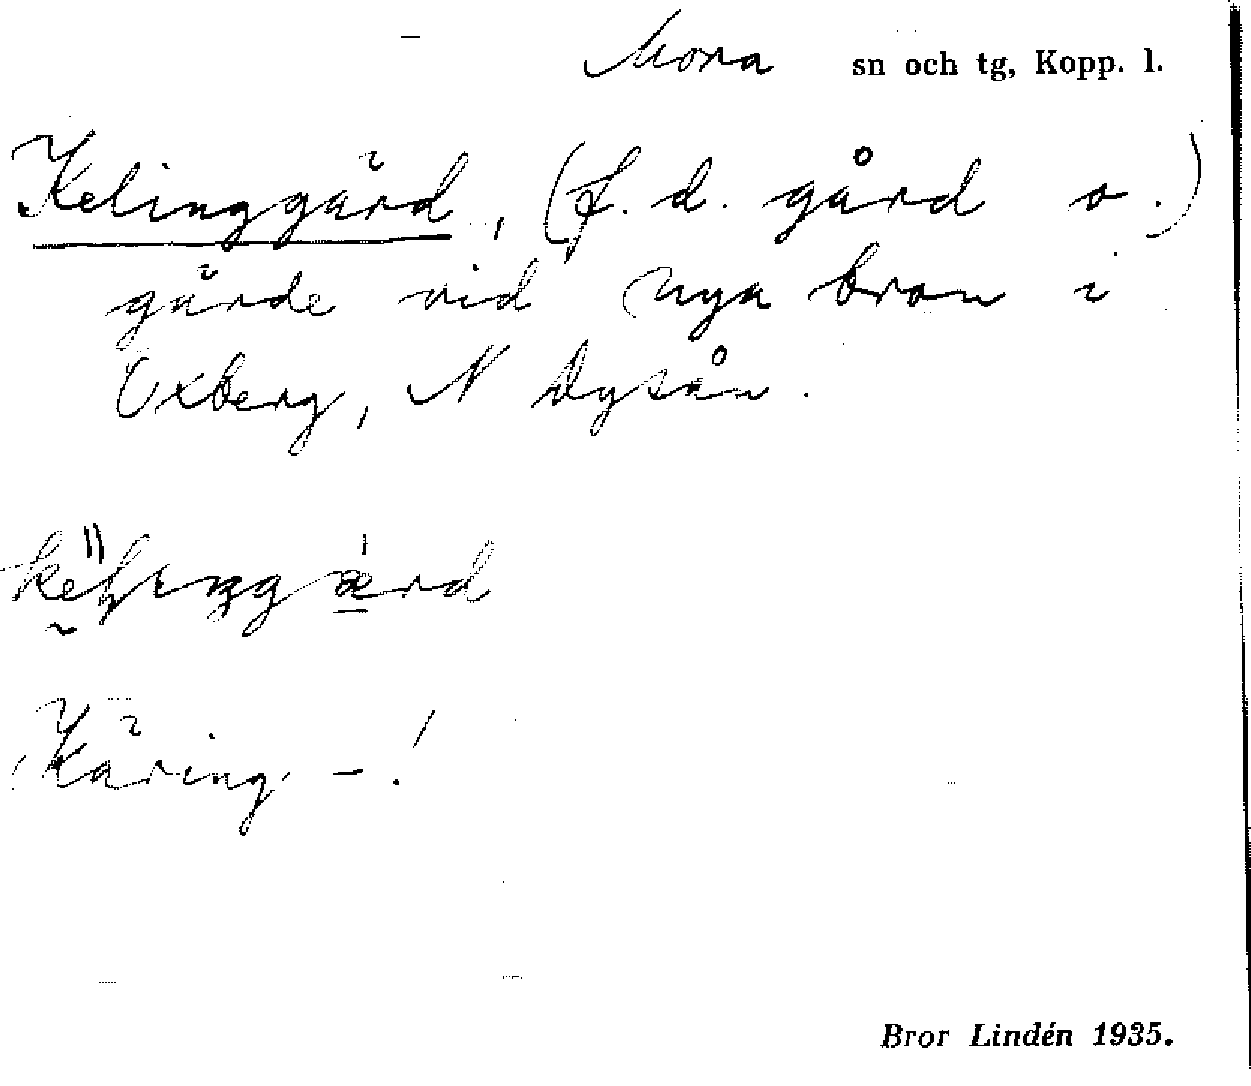 Mora sn och tg, Kopp. l.
Kelinggärd, (f. d. gård o.)
gärde vid nya bron i
Oxberg, N Dysån.
Käring –!
Bror Lindén 1935.